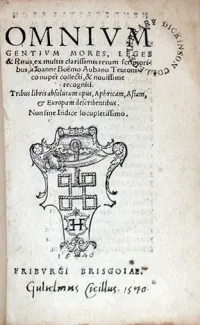 OMNIVM
GENTIVM MORES, LEGES
& Ritus, ex multis clarissimis rerum scriptori-
bus, a Ioanne Boëmo Aubano Teutonico
nuper collecti, & nouissime
recogniti.
Tribus libris absolutum opus, Aphricam, Asiam,
& Europam describentibus.
Non sine Indice locupletissimo.
DICKINSON
COLL
1540
FRIBVRGI BRISGOIAE.
Gulielmus Cicillus. 1540